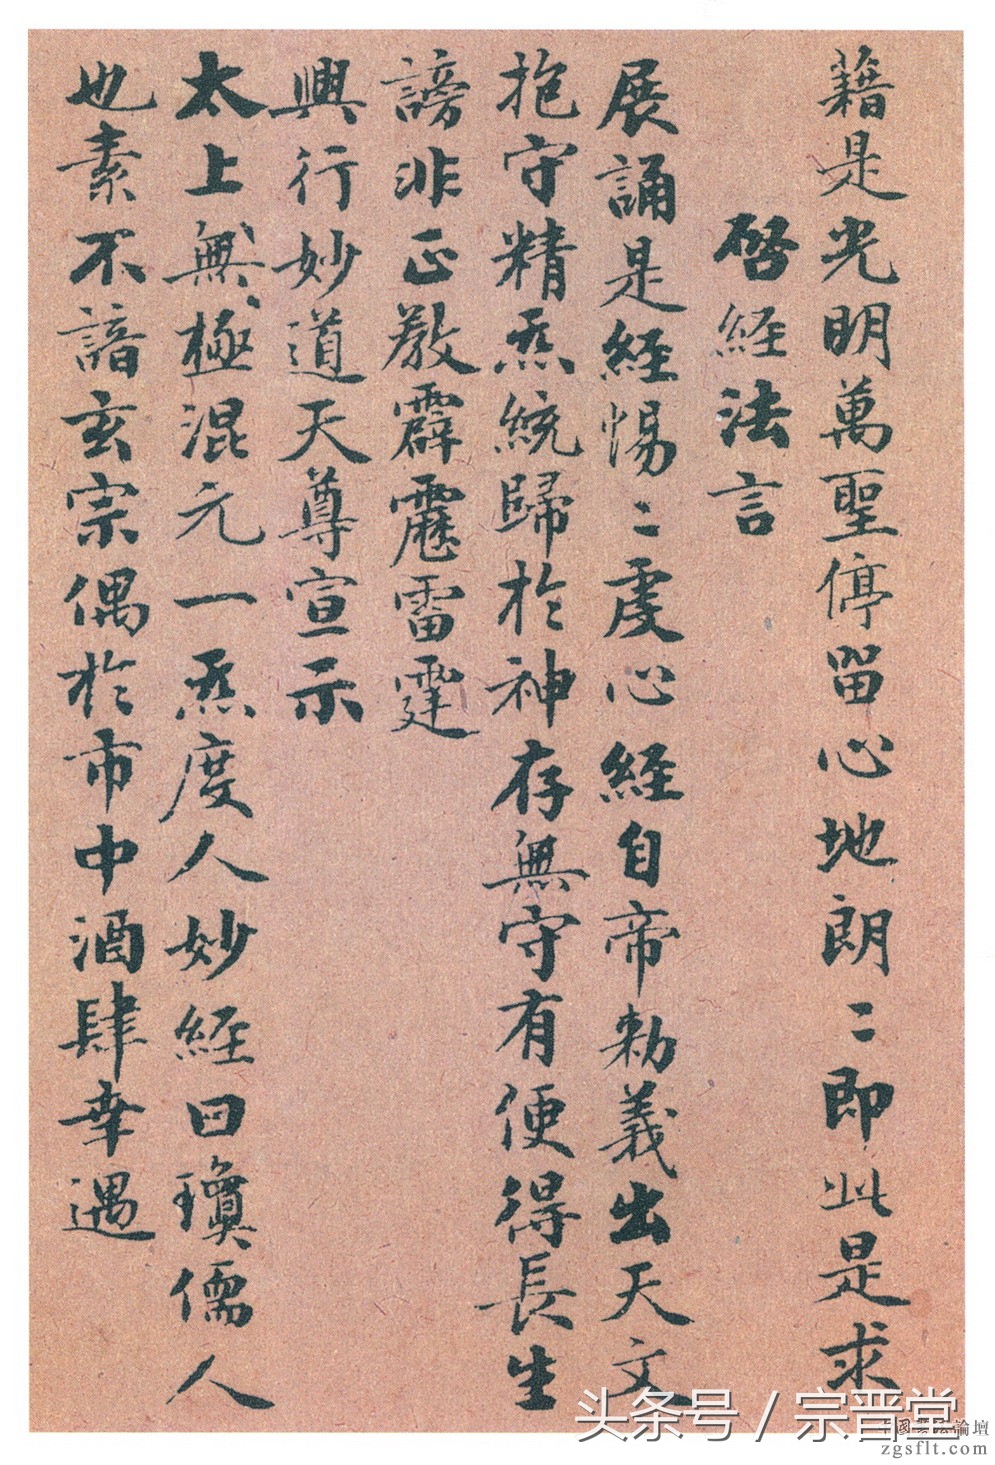 藉是光明萬聖停留心地朗〻即此是求
啓経法言
展誦是経惕〻虔心経自帝勅義出天文
抱守精炁統歸於神存無守有便得長生
謗非正教霹靂雷霆
興行妙道天尊宣示
太上無極混元一炁度人妙経曰瓊儒人
也素不諳玄宗偶於市中酒肆幸遇
头条号 / 宗晋堂
中國書法論壇
zgsflt.com